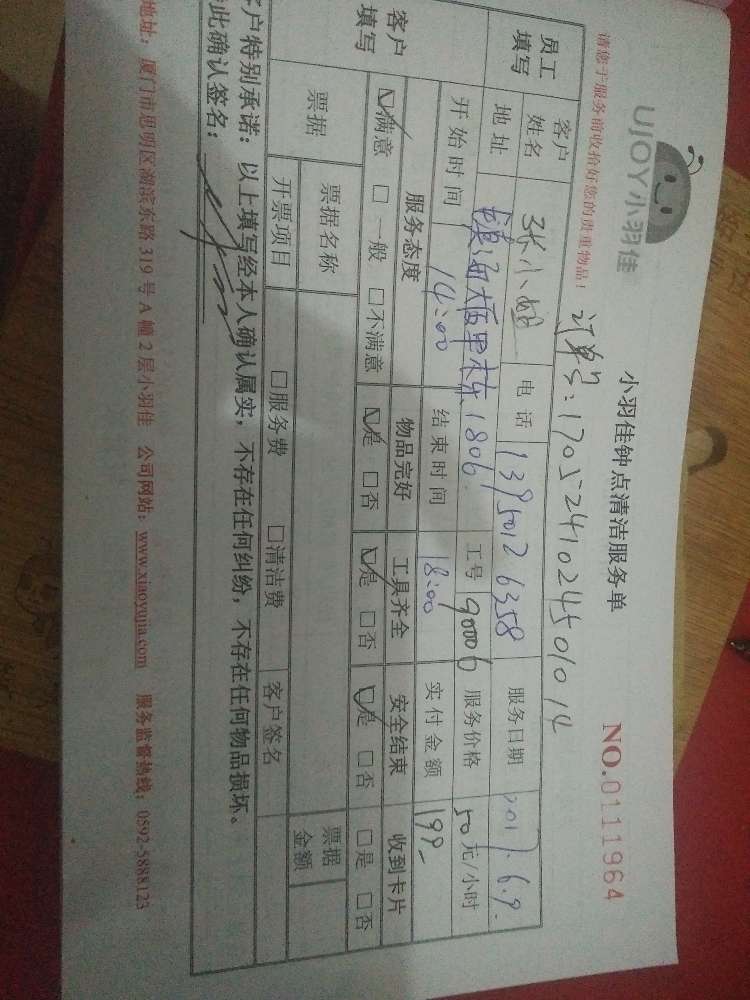 UJOY小羽佳
小羽佳钟点清洁服务单
NO.0111964
请您于服务前收拾好您的贵重物品！
订单号:1705241024501014
员工填写 客户姓名 张小姐 电话 13950126358 服务日期 2017.6.9.
地址 1806. 工号 90006 服务价格 50元/小时
开始时间 14:00 结束时间 18:00 实付金额 199-
客户填写 服务态度 物品完好 工具齐全 安全结束 收到卡片
☑满意 □一般 □不满意 ☑是 □否 ☑是 □否 ☑是 □否 □是 □否
票据 票据名称 票据金额
开票项目 □服务费 □清洁费 客户签名
客户特别承诺：以上填写经本人确认属实，不存在任何纠纷，不存在任何物品损坏。
特此确认签名：
地址：厦门市思明区湖滨东路319号A幢2层小羽佳 公司网站：www.xiaoyujia.com 服务监督热线：0592-5888123